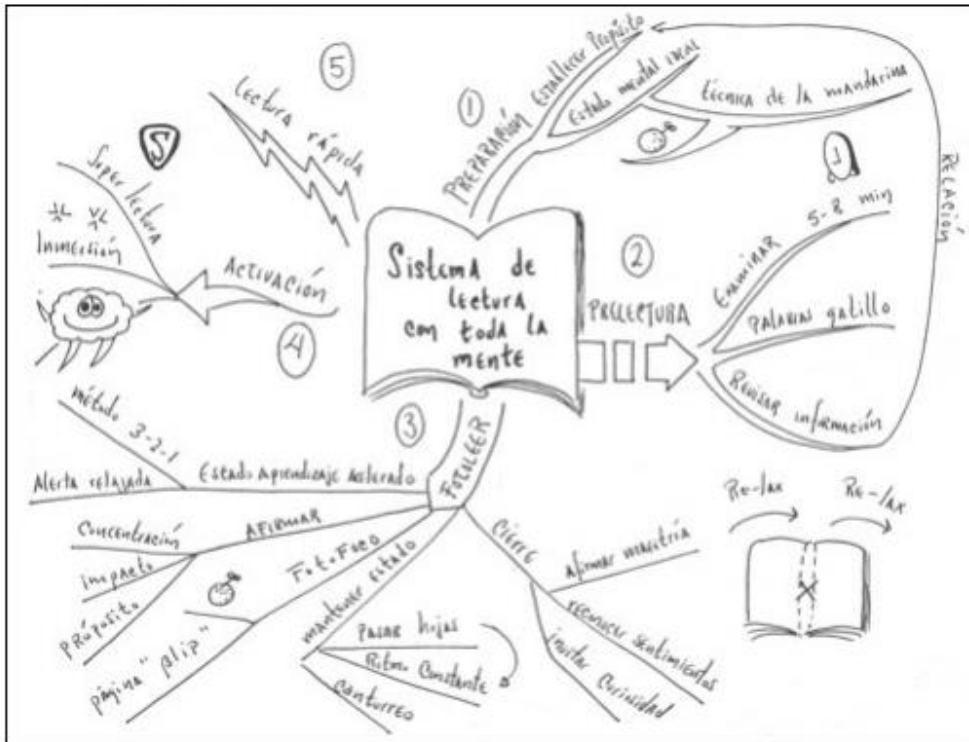 Sistema de
lectura
con toda la
mente
1
PREPARACIÓN
Establecer Propósito
Estado mental ideal
técnica de la mandarina
2
PRELECTURA
Examinar 5-8 min
Palabras gatillo
Revisar información
RELACIÓN
3
FOTOLEER
Estado Aprendizaje Acelerado
método 3-2-1
Alerta relajada
AFIRMAR
Concentración
impacto
Propósito
FotoFoco
página "blip"
mantener estado
Pasar hojas
Ritmo Constante
Canturreo
Cierre
afirmar maestría
reconocer sentimientos
invitar curiosidad
Re-lax
Re-lax
4
ACTIVACIÓN
Super lectura
Inmersión
S
5
lectura rápida